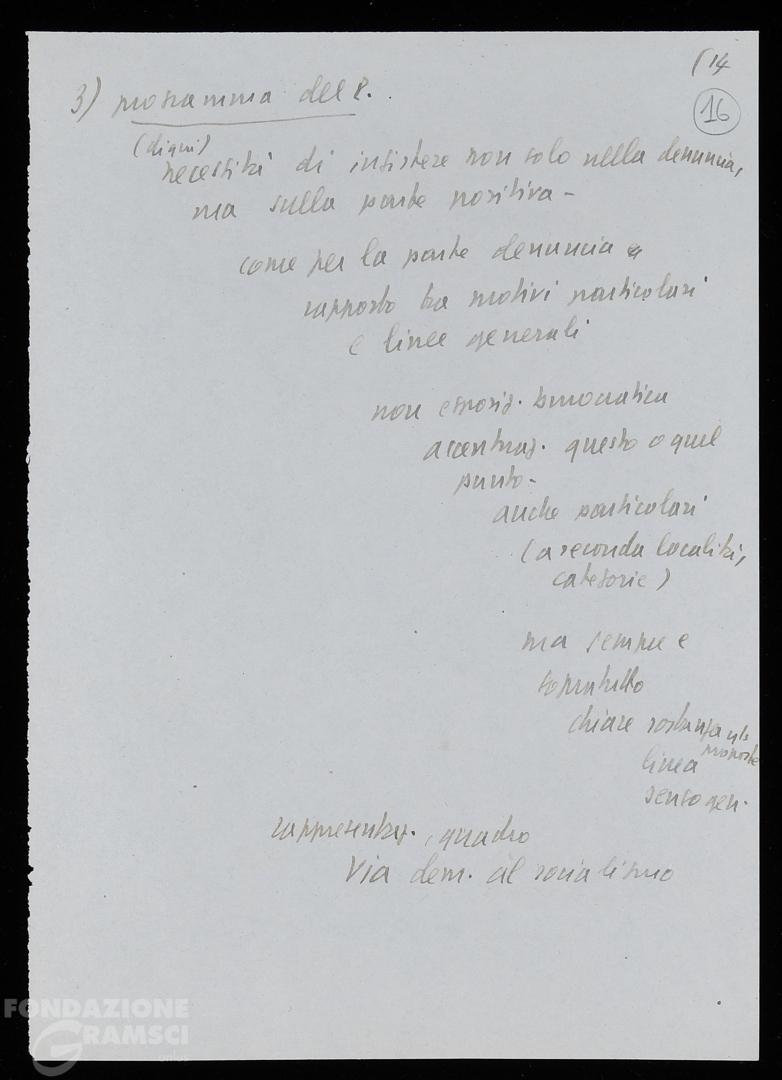 (14
16
3) programma del P.
(di qui)
necessità di insistere non solo nella denuncia,
ma sulla parte positiva -
come per la parte denuncia
rapporto tra motivi particolari
e linee generali
non esposiz. burocratica
accentuaz. questo o quel
punto -
anche particolari
(a seconda località,
categorie)
ma sempre e
sopratutto
chiare sostanza
proposte
linea
senso gen.
rappresentaz. quadro
Via dem. al socialismo
FONDAZIONE
GRAMSCI
onlus